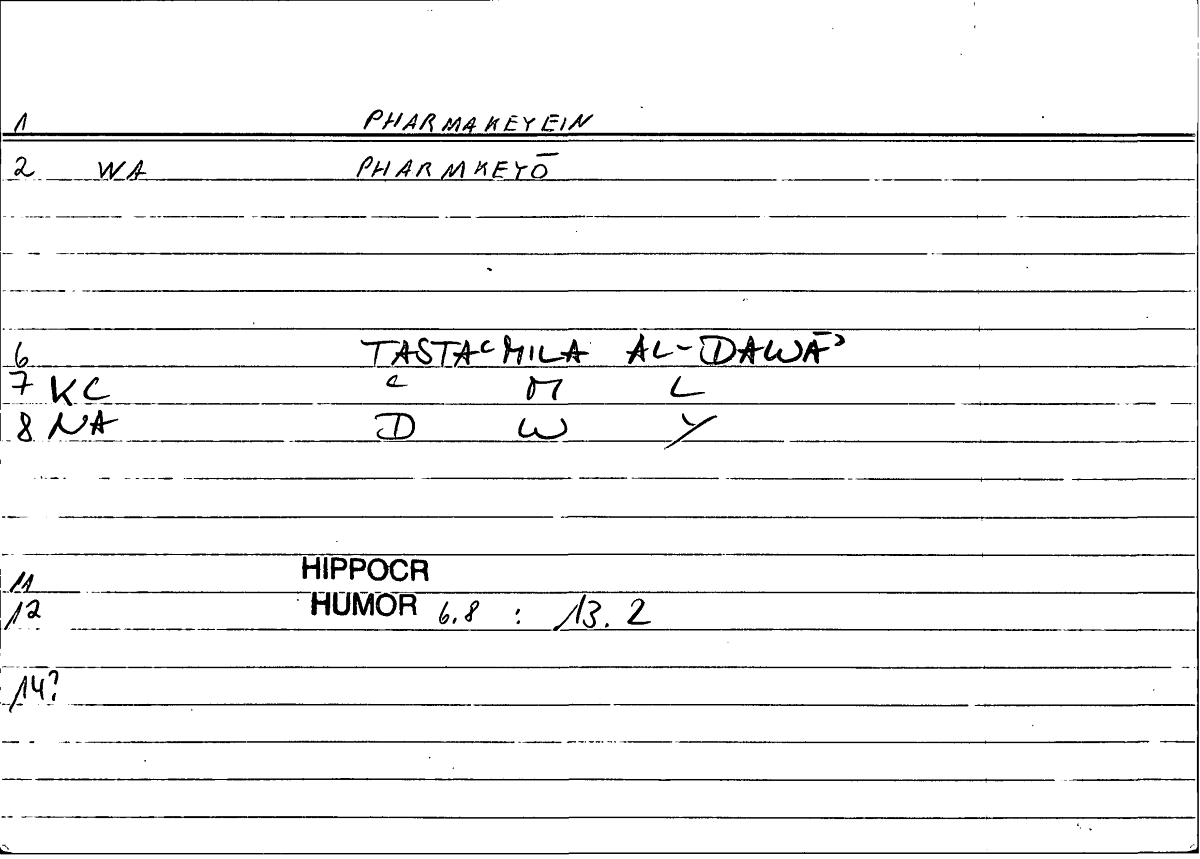 1 PHARMAKEYEIN
2 WA PHARMKEYŌ
6 TASTAʿMILA AL-DAWĀʾ
7 KC ʿ M L
8 NA D W Y
11 HIPPOCR
12 HUMOR 6.8 : 13.2
14?